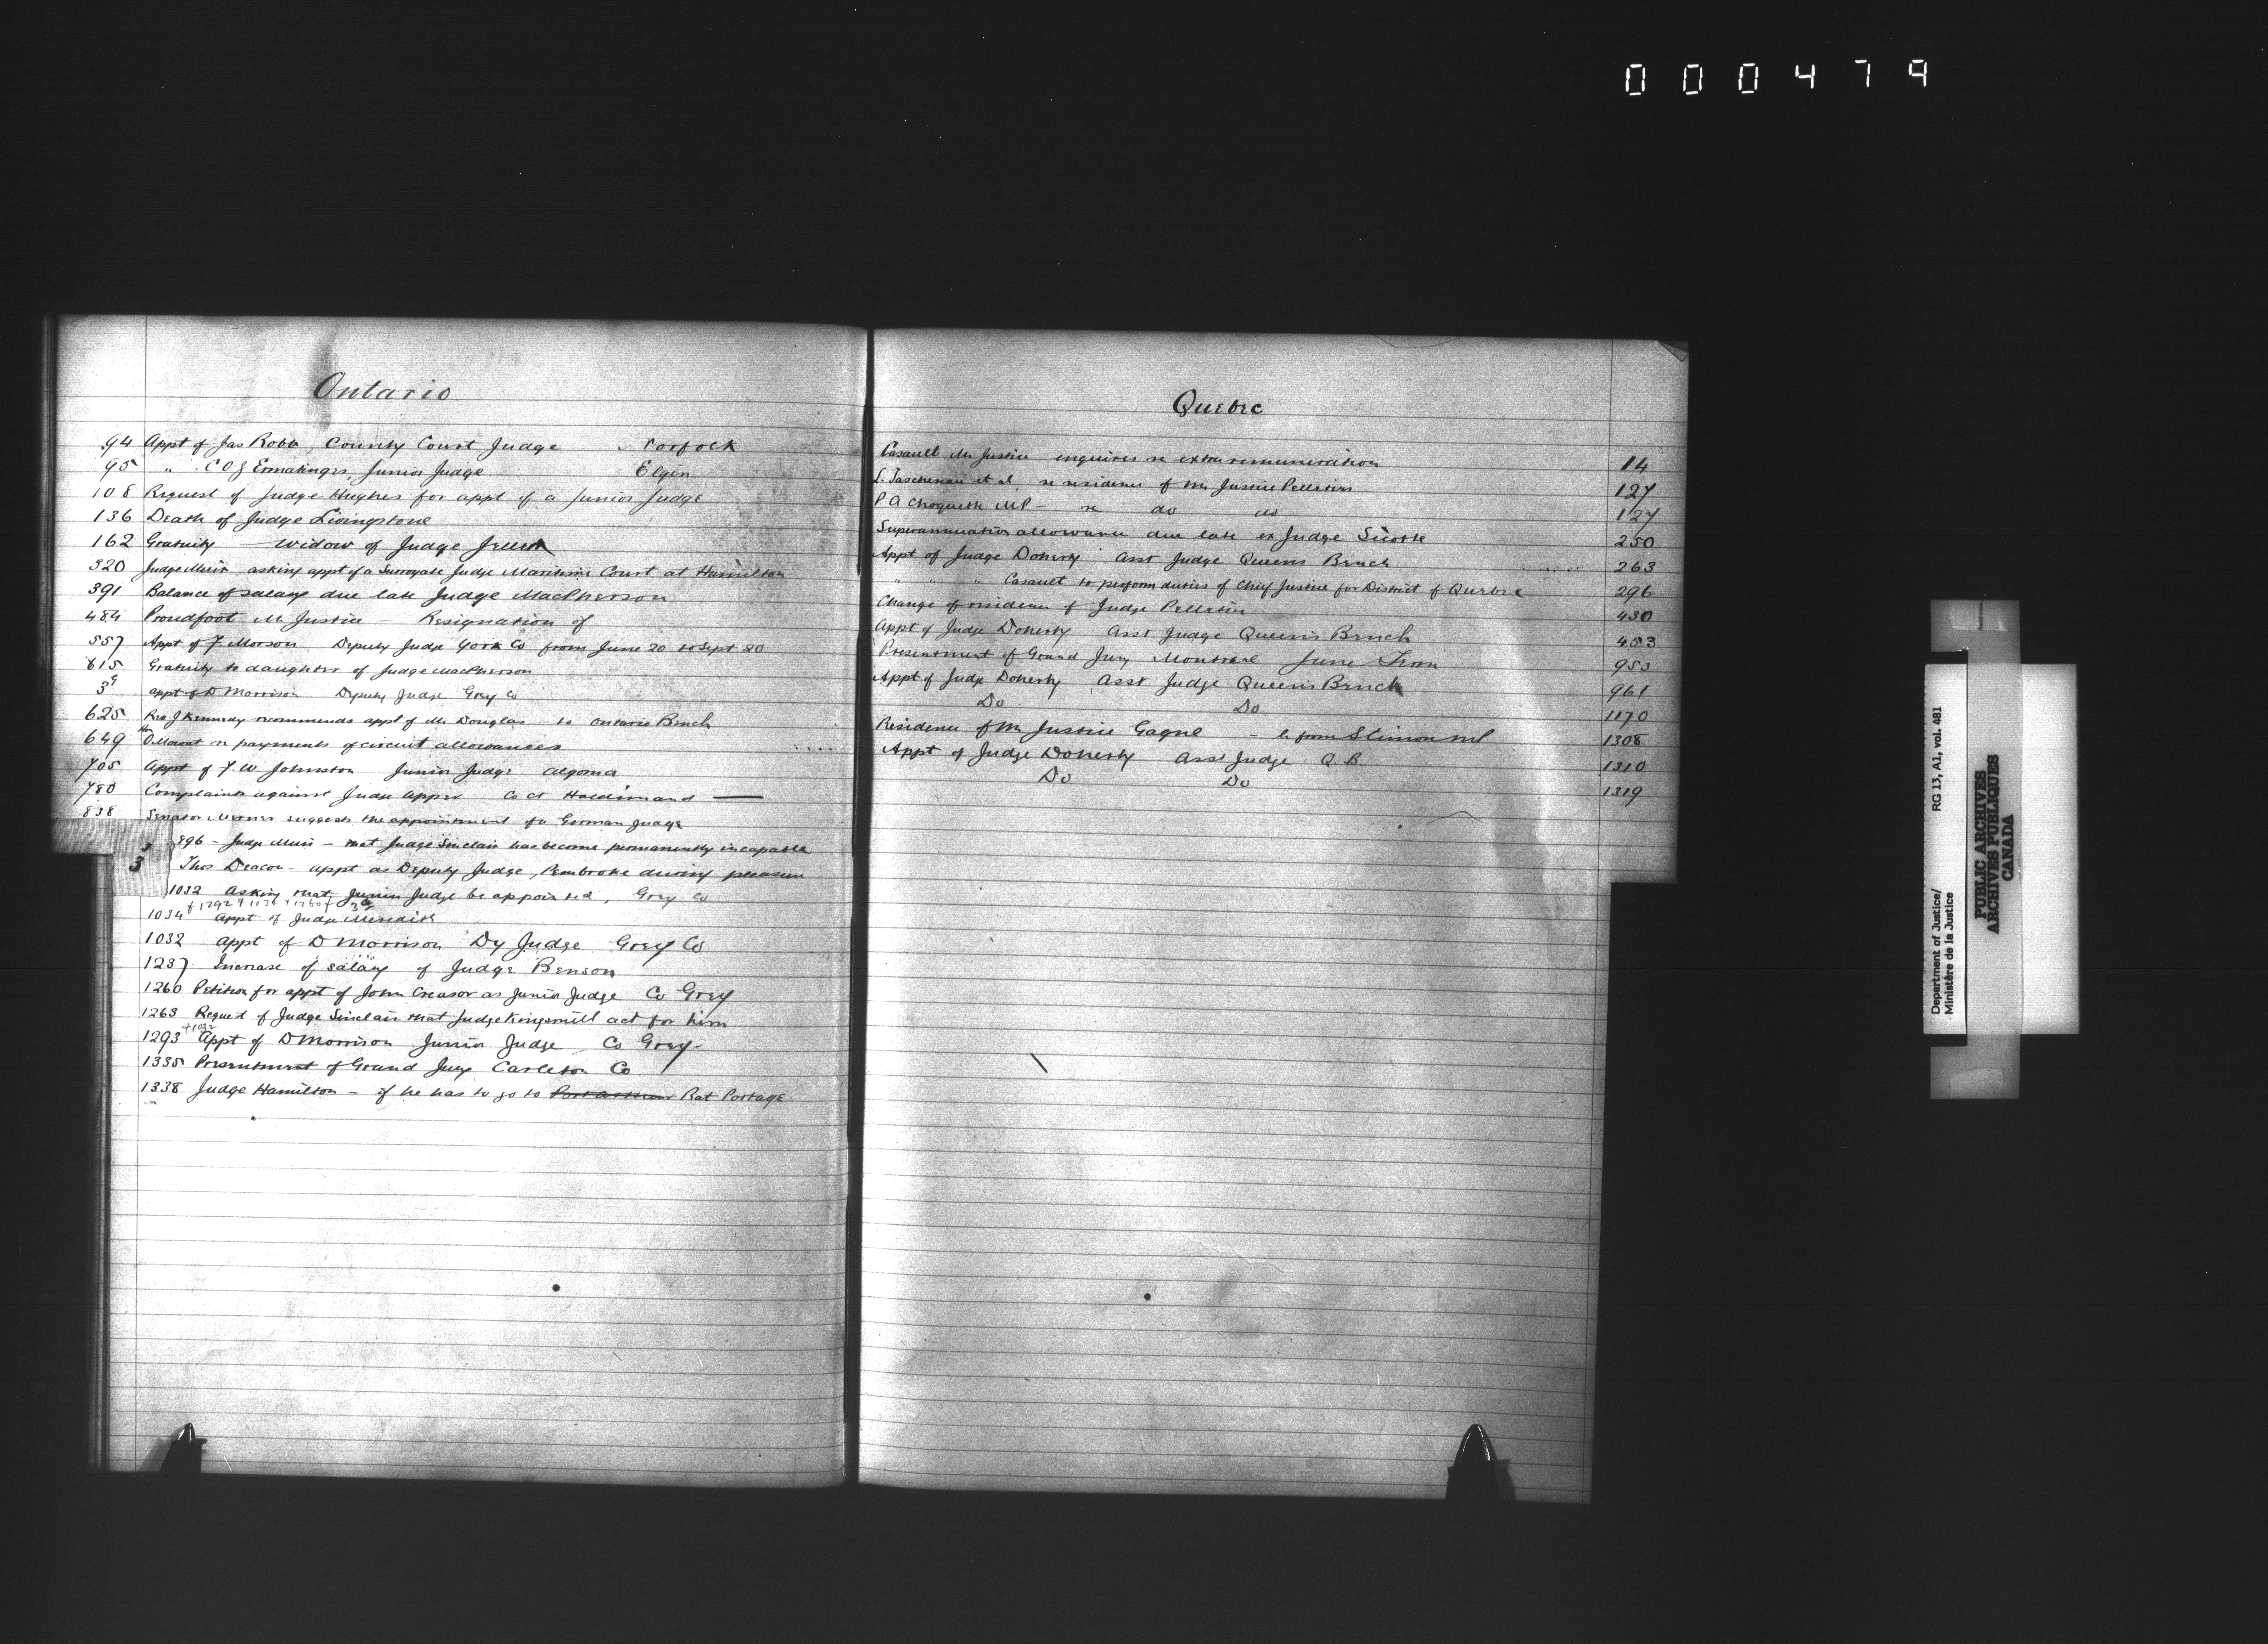 000479
Ontario
94 Appt of Jas Robb, County Court Judge Norfolk
95 " C O Z Ermatinger, Junior Judge Elgin
108 Request of Judge Hughes for appt of a Junior Judge
136 Death of Judge Livingstone
162 Gratuity widow of Judge
320 Judge Muir asking appt of a Surrogate Judge Maritime Court at Hamilton
391 Balance of salary due late Judge MacPherson
484 Proudfoot Mr Justice – Resignation of
557 Appt of F. Morson Deputy Judge York Co from June 20 to Sept 20
615 Gratuity to daughter of Judge MacPherson
39 appt of D Morrison Deputy Judge Grey Co
625 Rev J Kennedy recommends appt of Mr Douglas – to Ontario Bench
649 Hon O Mowat re payments of circuit allowances
705 Appt of F. W. Johnston Junior Judge Algoma
780 Complaints against Judge Upper Co Ct Haldimand —
838 Senator Merner suggests the appointment of a German Judge
896 – Judge Muir – that Judge Sinclair has become permanently incapable
Thos Deacon – appt as Deputy Judge Pembroke during pleasure
1032 Asking that Junior Judge be appointed, Grey Co
1034 Appt of Judge Meredith
1032 Appt of D Morrison Dy Judge Grey Co
1237 Increase of salary of Judge Benson
1260 Petition for appt of John Creasor as Junior Judge Co Grey
1263 Request of Judge Sinclair that Judge Kingsmill act for him
+1032
1293 Appt of D Morrison Junior Judge Co Grey
1335 Presentment of Grand Jury Carleton Co
1338 Judge Hamilton – if he has to go to Port Arthur Rat Portage
Quebec
Casault Mr Justice enquires re extra remuneration 14
L. Taschereau et al, re residence of Mr Justice Pelletier 127
P A Choquette MP – re do do 127
Superannuation allowance due late ex Judge Sicotte 250
Appt of Judge Doherty Asst Judge Queens Bench 263
" " " Casault to perform duties of Chief Justice for District of Quebec 296
Change of residence of Judge Pelletier 430
Appt of Judge Doherty Asst Judge Queen's Bench 453
Presentment of Grand Jury Montreal June Term 953
Appt of Judge Doherty Asst Judge Queen's Bench 961
Do Do 1170
Residence of Mr Justice Gagne – from S Cimon MP 1308
Appt of Judge Doherty Asst Judge Q B 1310
Do Do 1319
Department of Justice/ RG 13, A1, vol. 481
Ministère de la Justice
PUBLIC ARCHIVES
ARCHIVES PUBLIQUES
CANADA